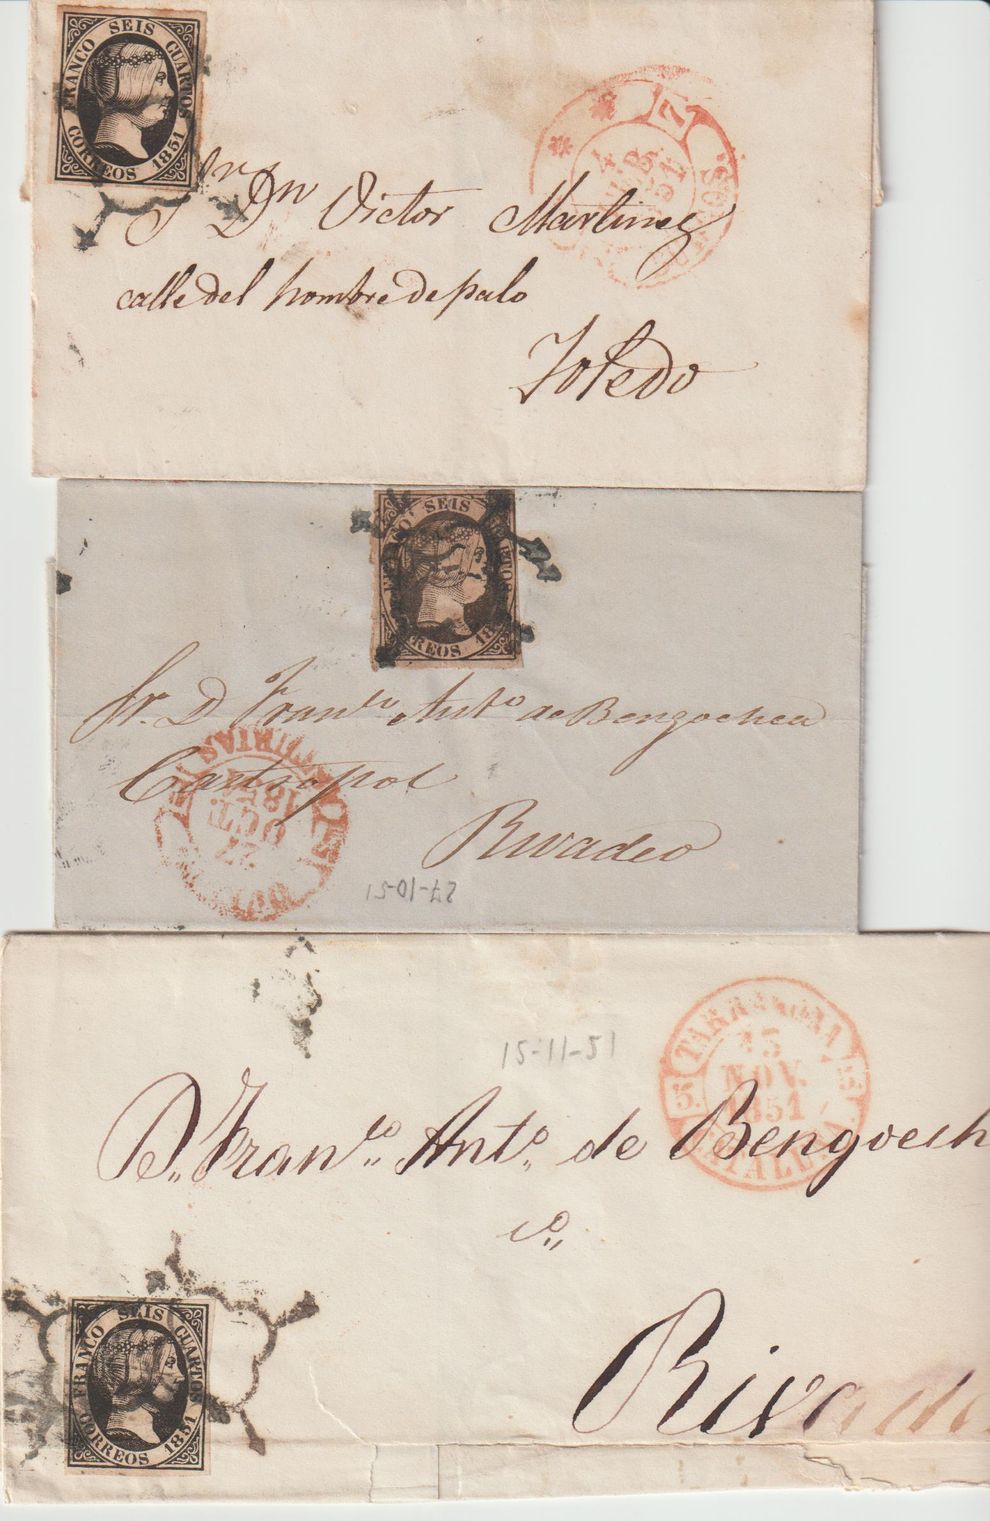 FRANCO SEIS CUARTOS
CORREOS 1851
7
4
51
Sr Dn Victor Martinez
calle del hombre de palo
Toledo
SEIS
CORREOS 18
Sr. D. Franco Anto de Bengochea
Castropol
Rivadeo
27
OCT.
1851
27-10-51
TARRAGONA
15
NOV.
1851
5.
15-11-51
D. Franco Anto de Bengoech
Rivade
FRANCO SEIS CUARTOS
CORREOS 1851